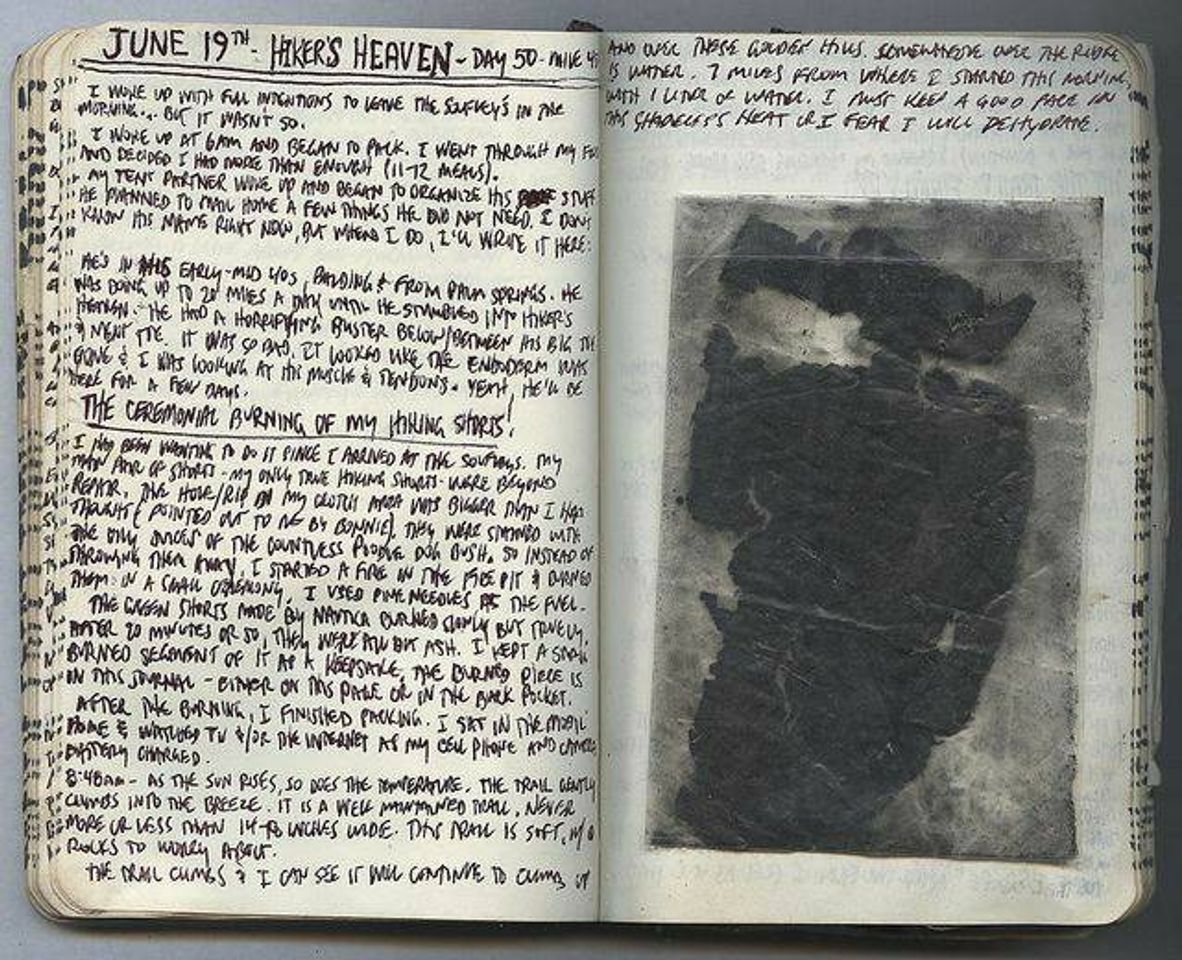 JUNE 19TH - HIKER'S HEAVEN - DAY 50 - MILE
I WOKE UP WITH FULL INTENTIONS TO LEAVE THE SOUFLEY'S IN THE
MORNING... BUT IT WASN'T SO.
I WOKE UP AT 6AM AND BEGAN TO PACK. I WENT THROUGH MY
AND DECIDED I HAD MORE THAN ENOUGH (11-12 MEALS).
MY TENT PARTNER WOKE UP AND BEGAN TO ORGANIZE HIS STUFF
HE PLANNED TO MAIL HOME A FEW THINGS HE DID NOT NEED. I DON'T
KNOW HIS NAME RIGHT NOW, BUT WHEN I DO, I'LL WRITE IT HERE:
HE'S IN HIS EARLY-MID 40S, BALDING & FROM PALM SPRINGS. HE
WAS DOING UP TO 20 MILES A DAY UNTIL HE STUMBLED INTO HIKER'S
HEAVEN. HE HAD A HORRIFYING BLISTER BELOW/BETWEEN HIS BIG TOE
& NEXT TOE. IT WAS SO BAD, IT LOOKED LIKE THE ENDODERM WAS
GONE & I WAS LOOKING AT HIS MUSCLE & TENDONS. YEAH, HE'LL BE
HERE FOR A FEW DAYS.
THE CEREMONIAL BURNING OF MY HIKING SHORTS!
I HAD BEEN WANTING TO DO IT SINCE I ARRIVED AT THE SOUFLEYS. MY
MAIN PAIR OF SHORTS - MY ONLY TRUE HIKING SHORTS - WERE BEYOND
REPAIR. THE HOLE/RIP IN MY CROTCH AREA WAS BIGGER THAN I HAD
THOUGHT (POINTED OUT TO ME BY BONNIE). THEY WERE STAINED WITH
THE OILY JUICES OF THE COUNTLESS POODLE DOG BUSH. SO INSTEAD OF
THROWING THEM AWAY, I STARTED A FIRE IN THE FIRE PIT & BURNED
THEM. IN A SMALL CEREMONY, I USED PINE NEEDLES AS THE FUEL.
THE GREEN SHORTS MADE BY NAUTICA BURNED SLOWLY BUT TRUELY.
AFTER 20 MINUTES OR SO, THEY WERE ALL BUT ASH. I KEPT A SMALL
BURNED SEGMENT OF IT AS A KEEPSAKE, THE BURNED PIECE IS
IN THIS JOURNAL - EITHER ON THIS PAGE OR IN THE BACK POCKET.
AFTER THE BURNING, I FINISHED PACKING. I SAT IN THE MOBIL
HOME & WATCHED TV &/OR THE INTERNET AS MY CELL PHONE AND CAMERA
BATTERY CHARGED.
8:48AM - AS THE SUN RISES, SO DOES THE TEMPERATURE. THE TRAIL GENTLY
CLIMBS INTO THE BREEZE. IT IS A WELL MAINTAINED TRAIL, NEVER
MORE OR LESS THAN 14-18 INCHES WIDE. THIS TRAIL IS SOFT, W/O
ROCKS TO WORRY ABOUT.
THE TRAIL CLIMBS & I CAN SEE IT WILL CONTINUE TO CLIMB UP
AND OVER THESE GOLDEN HILLS. SOMEWHERE OVER THE RIDGE
IS WATER. 7 MILES FROM WHERE I STARTED THIS MORNING,
WITH 1 LITER OF WATER. I MUST KEEP A GOOD PACE IN
THIS SHADELESS HEAT OR I FEAR I WILL DEHYDRATE.